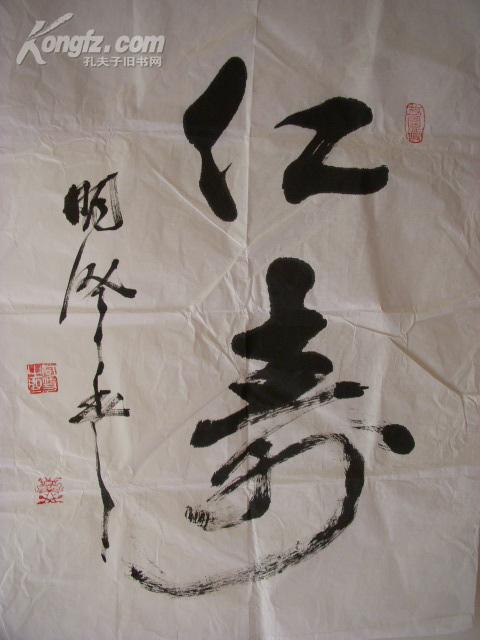 Kongfz.com
孔夫子旧书网
仁寿
明
书